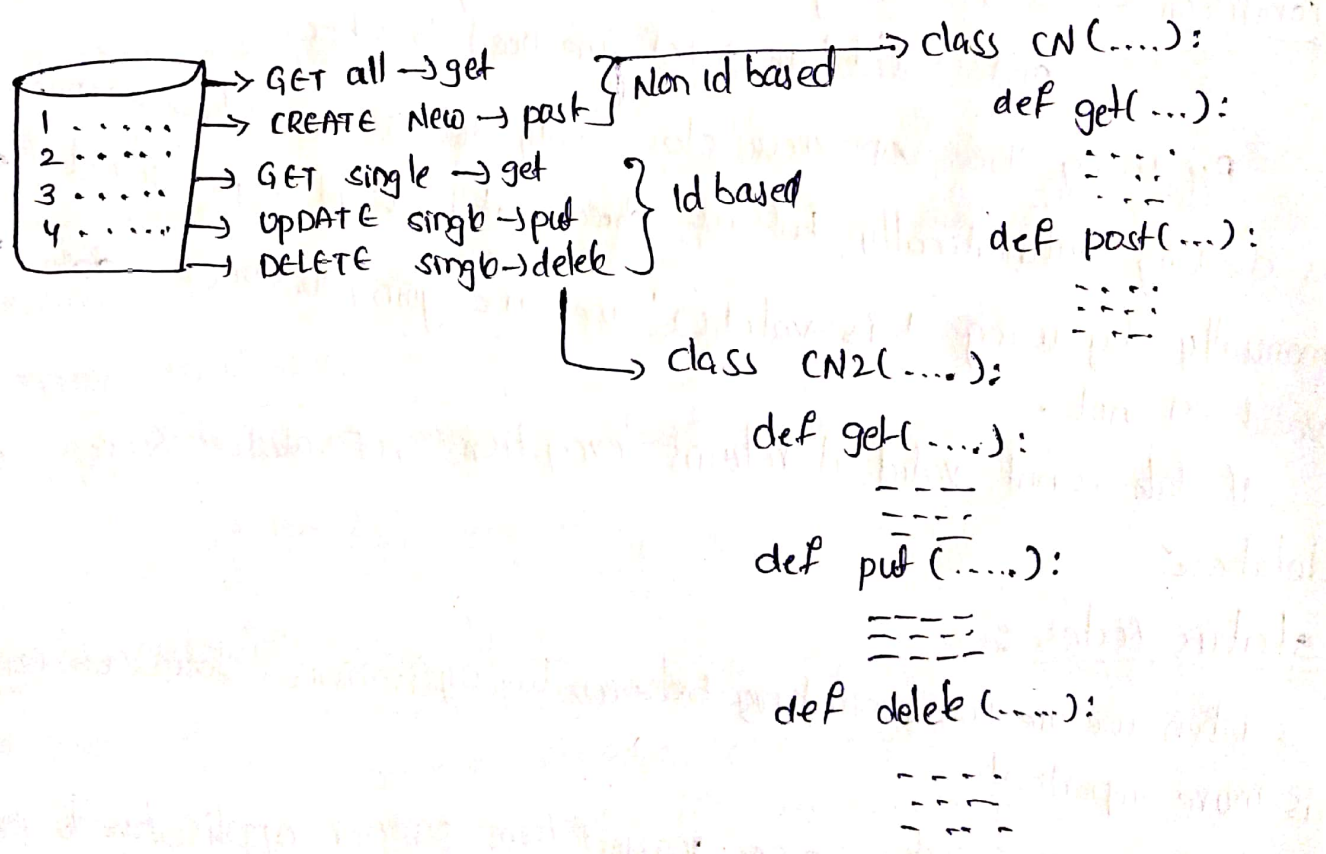 GET all → get
CREATE New → post
} Non id based
1 .....
2 .....
3 .....
4 ......
GET single → get
UPDATE single → put
DELETE single → delete
} Id based
class CN (....):
def get(...):
def post(...):
class CN2(....):
def get(....):
def put (.....):
def delete (.....):